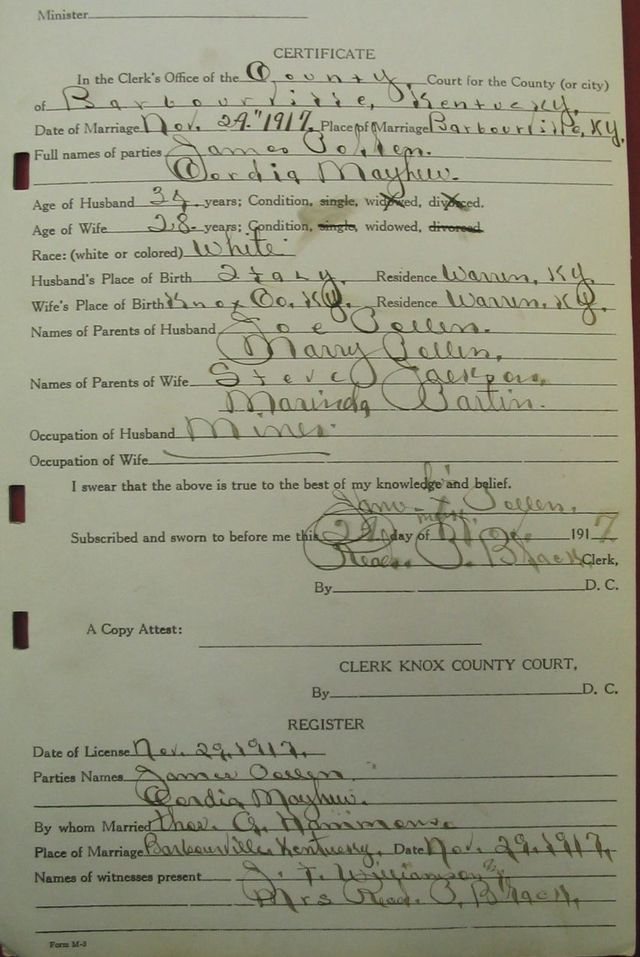 Minister
CERTIFICATE
In the Clerk's Office of the County Court for the County (or city)
of Barbourville, Kentucky,
Date of Marriage Nov. 29." 1917. Place of Marriage Barbourville, KY,
Full names of parties James
Cordia Mayhew.
Age of Husband years; Condition, single, widowed, divorced.
Age of Wife 28 years; Condition, single, widowed, divorced
Race: (white or colored) White
Husband's Place of Birth Italy. Residence Warren, KY,
Wife's Place of Birth Knox Co, KY, Residence Warren, KY,
Names of Parents of Husband Joe
Marry
Names of Parents of Wife Steve Jackson,
Marinda
Occupation of Husband Miner.
Occupation of Wife
I swear that the above is true to the best of my knowledge and belief.
mark
Subscribed and sworn to before me this 29 day of Nov. 1917
Read. P. Black Clerk,
By D. C.
A Copy Attest:
CLERK KNOX COUNTY COURT,
By D. C.
REGISTER
Date of License Nov. 29, 1917,
Parties Names James
Cordia Mayhew.
By whom Married Thos. G. Hammons
Place of Marriage Barbourville, Kentucky, Date Nov. 29, 1917,
Names of witnesses present J. T. Williamson
Mrs Read. P. Black,
Form M-3